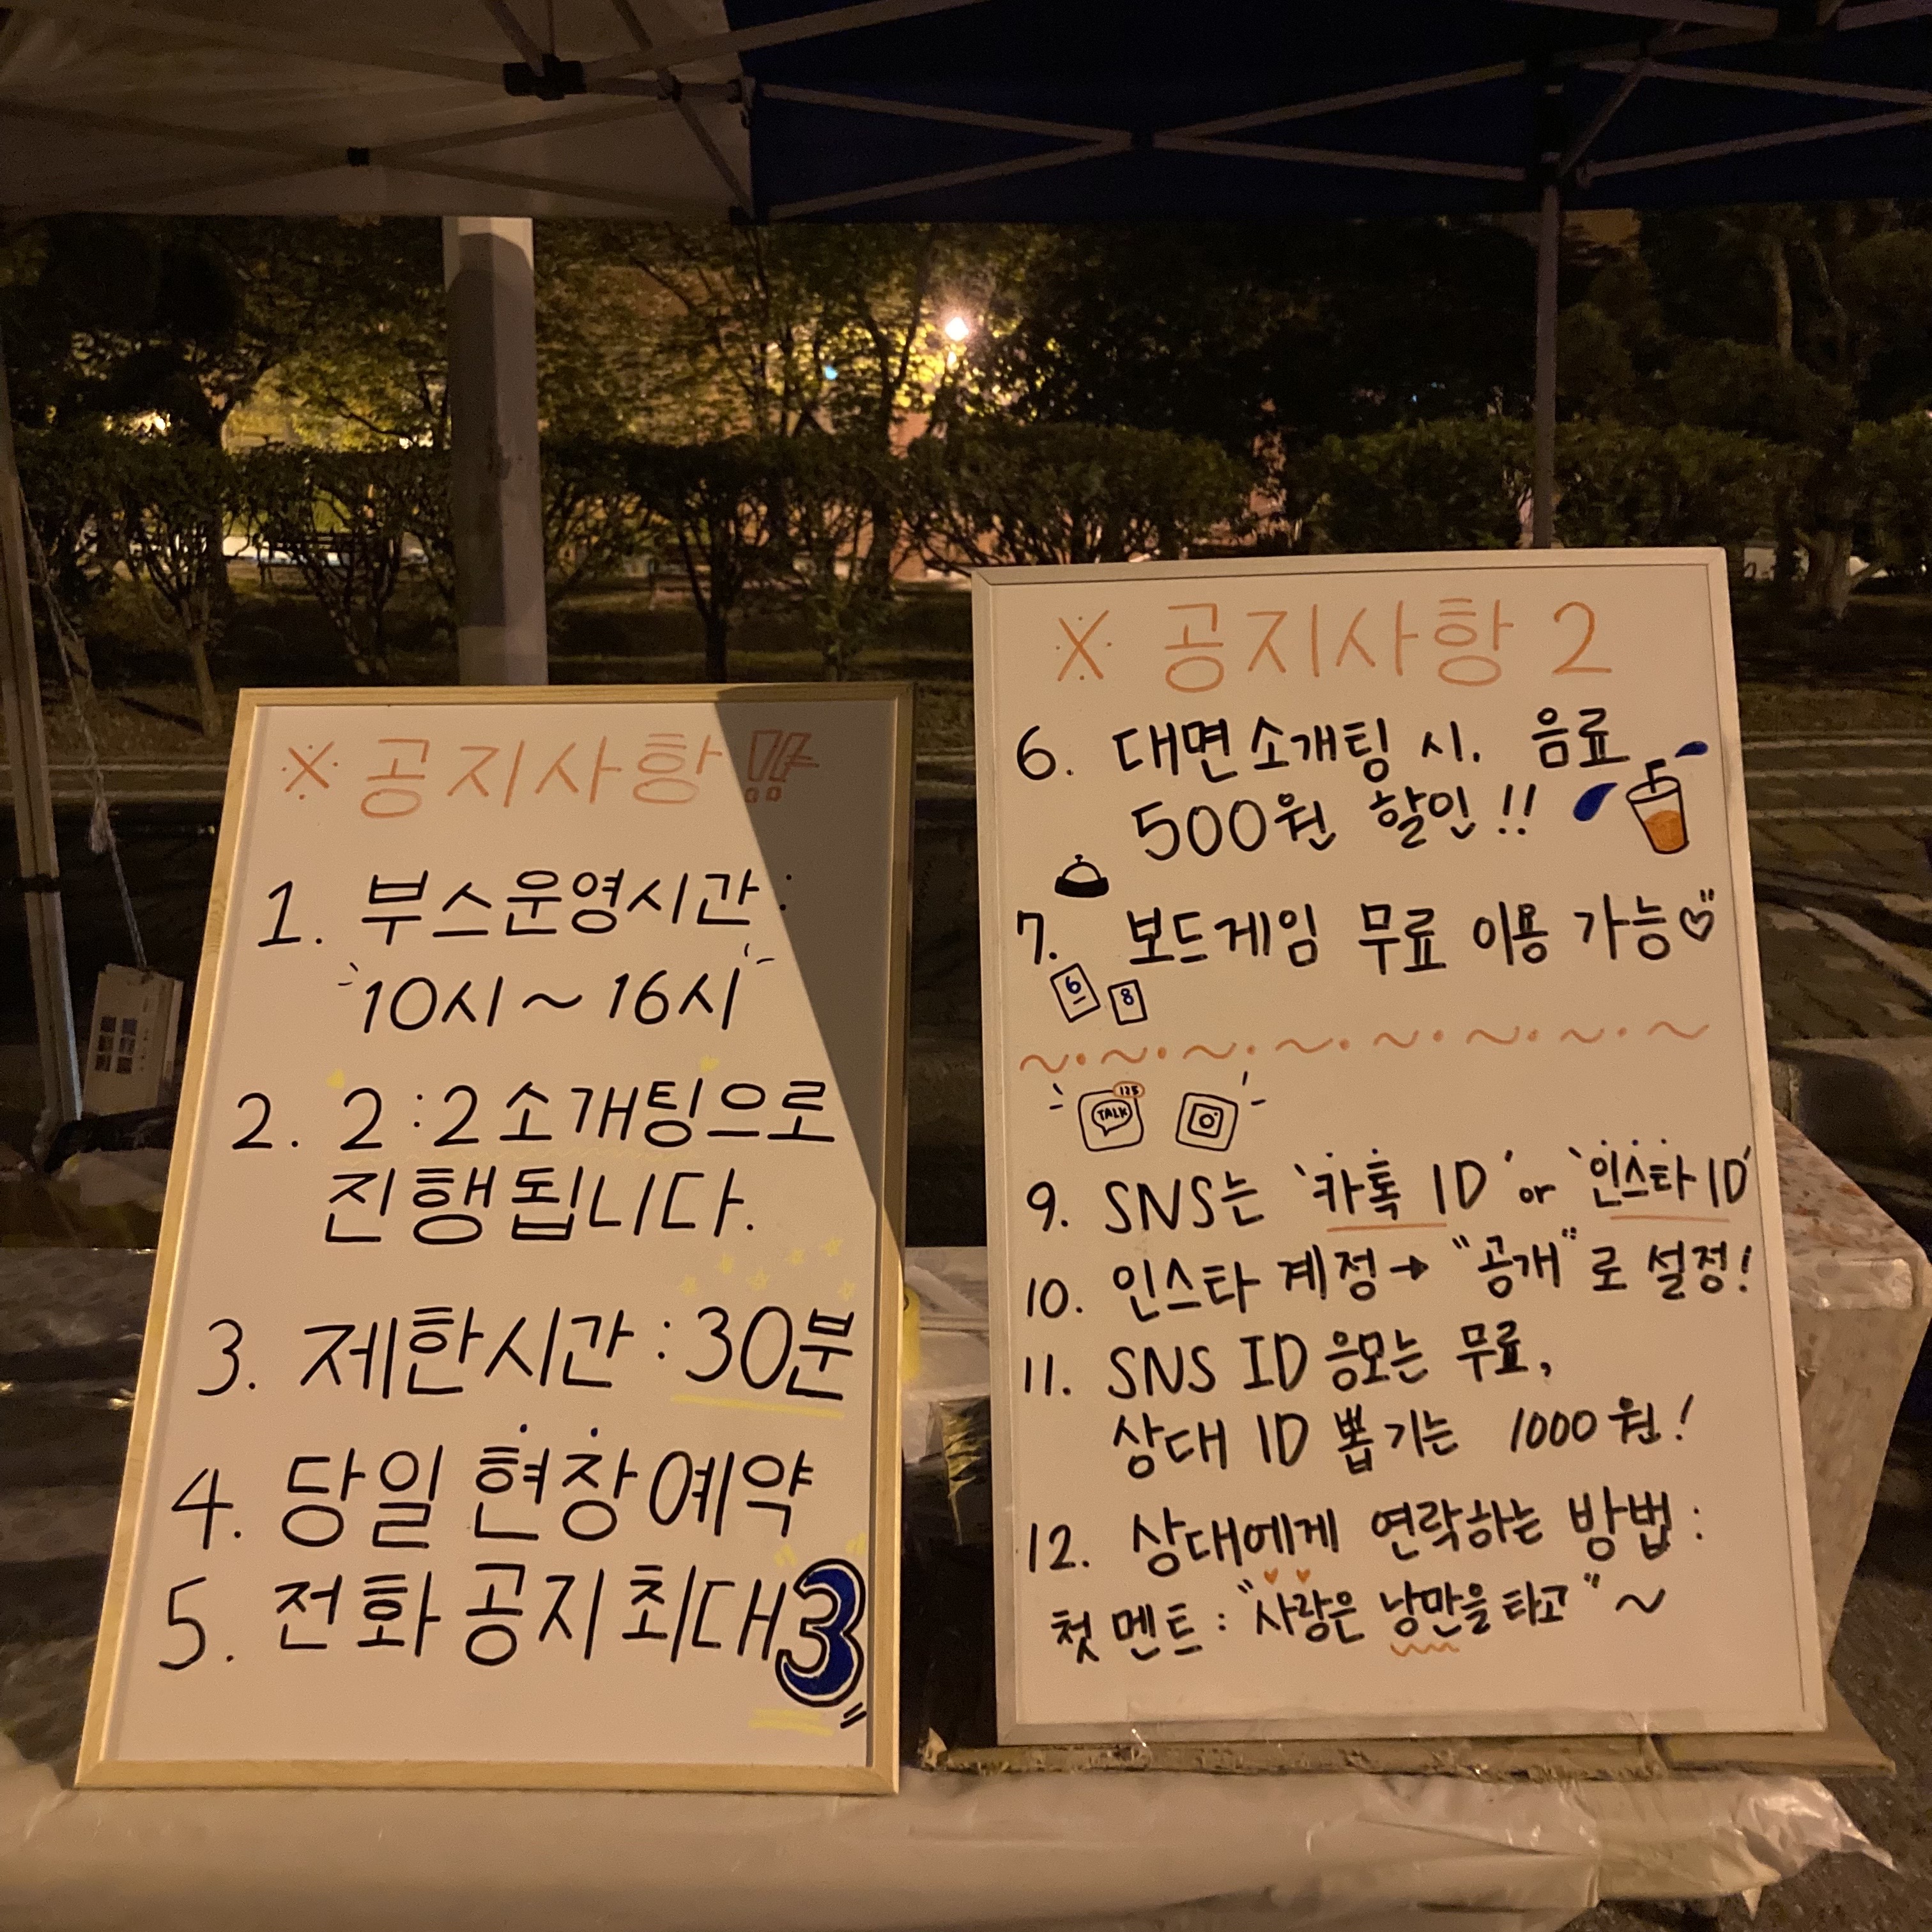 ※ 공지사항!!
1. 부스운영시간:
10시~16시
2. 2:2 소개팅으로
진행됩니다.
3. 제한시간: 30분
4. 당일 현장예약
5. 전화 공지 최대 3
※ 공지사항 2
6. 대면소개팅 시. 음료
500원 할인!!
7. 보드게임 무료 이용 가능♡
6 8
TALK
9. SNS는 '카톡 ID' or '인스타 ID'
10. 인스타 계정→ "공개"로 설정!
11. SNS ID 응모는 무료,
상대 ID 뽑기는 1000원!
12. 상대에게 연락하는 방법:
첫 멘트: "사랑은 낭만을 타고"~